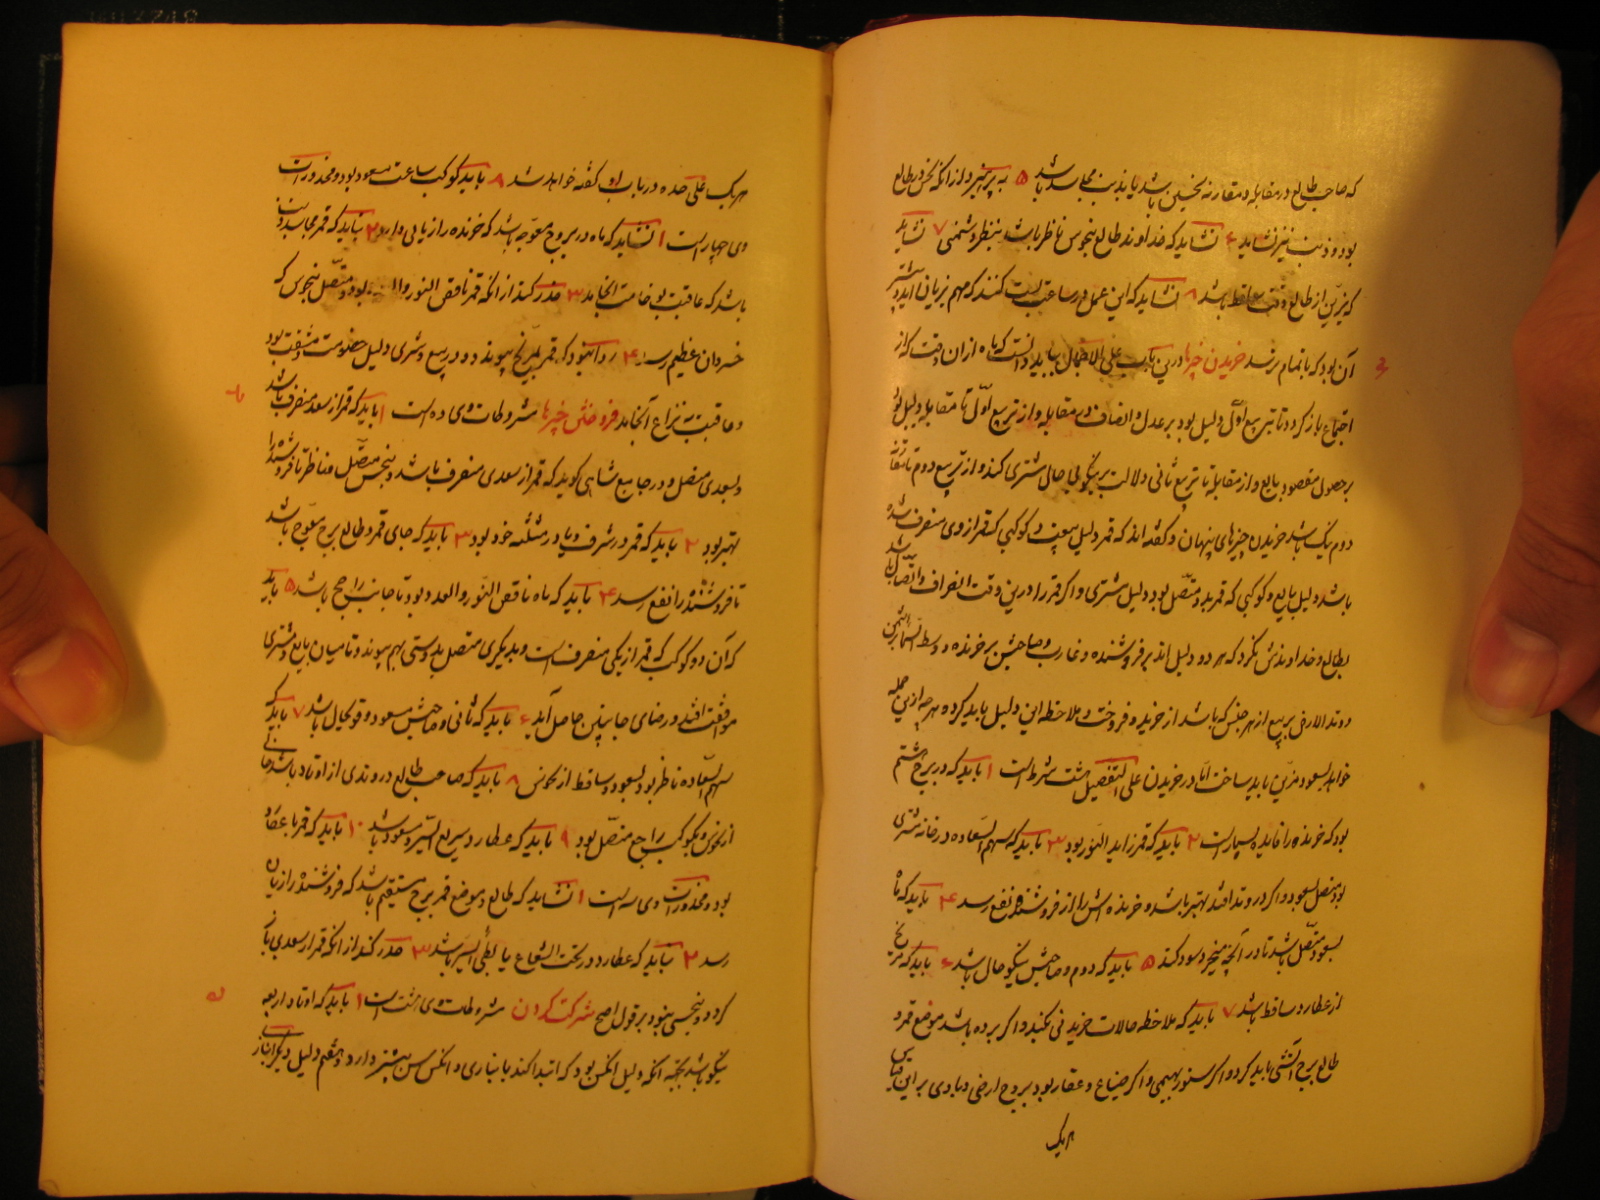 که صاحب طالع در مقابله و مقارنه نحسین باشد یا بذنب مجاسد باشد ۵ به پرهیزد از آنکه نحس در طالع
بود و ذنب نیز نشاید ۶ نشاید که خداوند طالع بنحوس ناظر باشد بنظر دشمنی ۷ نشاید
که نیرین از طالع وقت ساقط باشد ۸ نشاید که این عمل در ساعت کنند که مهم بزیان آید
آن بود که باتمام نرسد خریدن چیزها درین باب علی الاجمال بباید دانست که ماه از آن وقت که از
اجتماع بازگردد تا تربیع اول دلیل بود بر عدل و انصاف در مقابله و از تربیع اول تا مقابله دلیل بود
بر حصول مقصود بایع و از مقابله تا تربیع ثانی دلالت بر نیکوئی حال مشتری کند و از تربیع دوم تا
دوم نیک باشد خریدن چیزهای پنهان و گفته اند که قمر دلیل و کوکبی که قمر از وی منصرف شده
باشد دلیل بایع و کوکبی که قمر بدو متصل بود دلیل مشتری و اگر قمر را درین وقت انصراف و اتصال نباشد
بطالع و خداوندش نگرد که هر دو دلیل اند بر فروشنده و غارب و صاحبش بر خرنده و وسط السما بر ثمن
و وتد الارض بر بیع از هر جنس که باشد از خرید و فروخت و ملاحظه این دلیل باید کرد و هر چه ازین جمله
خواهد بسعود مزین باید ساخت اما در خریدن علی التفصیل هشت شرط است ۱ باید که در برج هشتم
بود که خرنده را فایده بسیار است ۲ باید که قمر زاید النور بود ۳ باید که سهم السعاده در خانه مشتری
بود متصل بسعود و اگر در وتد افتد بهتر باشد و خرنده اش را از فروشنده نفع رسد ۴ باید که ماه
بسعود متصل باشد تا در آنچه میخرد سود کند ۵ باید که دوم و صاحبش نیکو حال باشد ۶ باید که مریخ
از عطارد ساقط باشد ۷ باید که ملاحظه حالات خریدنی بکند و اگر برده باشد موضع قمر و
طالع برج آتشی باید کرد و اگر ستور بهیمی و اگر ضیاع و عقار بود بروج ارضی و بادی بر این قیاس
هر یک
هر یک علی حده در باب او گفته خواهد شد ۸ باید کوکب ساعت مسعود بود و محذورات
وی چهار است ۱ نشاید که ماه در بروج معوجه باشد که خرنده را زیانی دارد ۲ نباید که قمر مجاسد ذنب
باشد که عاقبت بوخامت انجامد ۳ حذر کند از آنکه قمر ناقص النور بود و متصل بنحوس که
خسران عظیم رسد ۴ روا نبود که قمر بمریخ پیوندد و در بیع و شری دلیل خصومت و مشقت بود
و عاقبت به نزاع انجامد فروختن چیزها مشروطات وی ده است ۱ باید که قمر از سعد منصرف باشد
و بسعدی متصل و در جامع شاهی گوید که قمر از سعدی منصرف باشد و بنحس متصل و ناظر تا فروشنده را
بهتر بود ۲ باید که قمر در شرف و یا در مثلثه خود بود ۳ باید که جای قمر و طالع برج معوج باشد
تا فروشنده را نفع رسد ۴ باید که ماه ناقص النور و العدد بود تا جانب راجح باشد ۵ باید
که آن دو کوکب که قمر از یکی منصرف است و بدیگری متصل بدوستی بهم پیوندد تا میان بایع و مشتری
موافقت افتد و رضای جانبین حاصل آید ۶ باید که ثانی و صاحبش مسعود و قویحال باشد ۷ باید که
سهم السعاده ناظر بود بسعود و ساقط از نحوس ۸ باید که صاحب طالع در وتدی از اوتاد باشد خالی
از نحوس و بکوکب راجع متصل بود ۹ باید که عطارد سریع السیر و مسعود باشد ۱۰ باید که قمر با عطارد
بود و محذورات وی سه است ۱ نشاید که طالع و موضع قمر برج مستقیم باشد که فروشنده را زیان
رسد ۲ نباید که عطارد در تحت الشعاع یا بطی السیر باشد ۳ حذر کند از آنکه قمر از سعدی باز
گردد و بنحسی پیوندد بر قول اصح شرکت کردن مشروطات وی هشت است ۱ باید که اوتاد اربعه
نیکو باشد بجهة آنکه دلیل آنکس بود که ابتدا کند بانبازی و آنکس سن بیشتر دارد و هفتم دلیل دیگر انباز